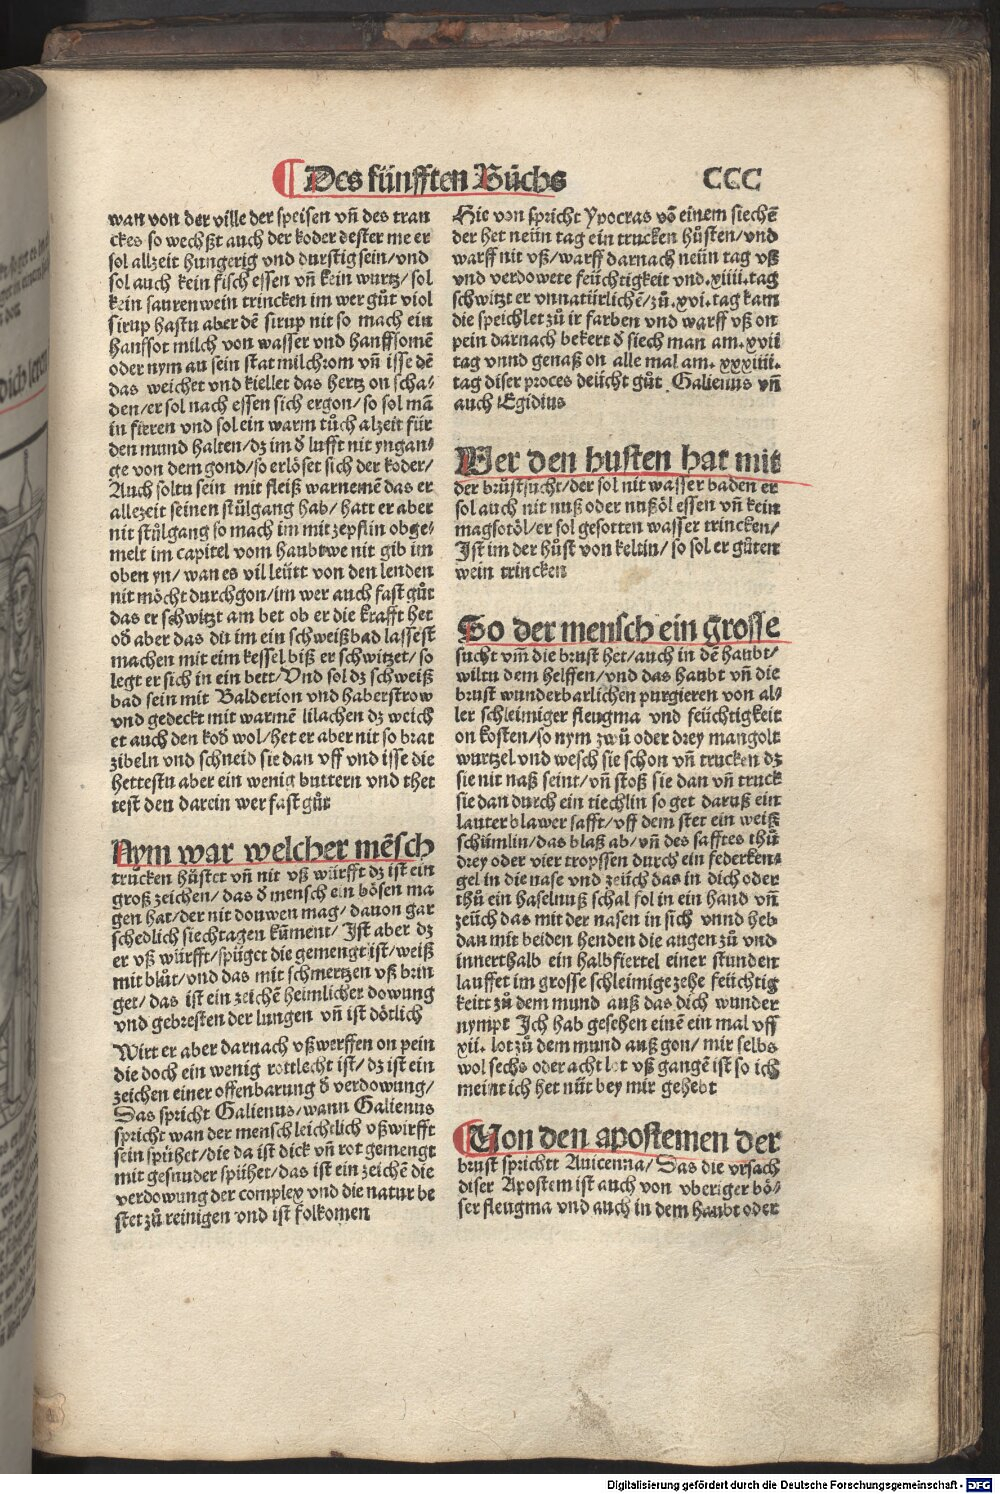 Des fünfften Bůchs CCC
wan von der ville der speisen vñ des tran
ckes so wechßt auch der koder dester me er
sol allzeit hungerig vnd durstig sein/vnd
sol auch kein fisch essen vñ kein wurtz/sol
kein sauren wein trincken im wer gůt viol
sirup hastu aber dē sirup nit so mach ein
hanffsot milch von wasser vnd hanffsomē
oder nym an sein stat milchrom vñ isse dē
das weichet vnd kiellet das hertz on scha-
den/er sol nach essen sich ergon/so sol mā
in fieren vnd sol ein warm tůch alzeit für
den mund halten/dz im d̕ lufft nit yngan-
ge von dem gond/so erlöset sich der koder/
Auch soltu sein mit fleiß warnemē das er
allezeit seinen stůlgang hab/hatt er aber
nit stůlgang so mach im mit zepflin obge-
melt im capitel vom haubtwe nit gib im
oben yn/wan es vil leütt von den lenden
nit möcht durchgon/im wer auch fast gůt
das er schwitzt am bet ob er die krafft het
od̕ aber das du im ein schweißbad lassest
machen mit eim kessel biß er schwitzet/so
legt er sich in ein bett/Vnd sol dz schweiß
bad sein mit Balderion vnd haberstrow
vnd gedeckt mit warmē lilachen dz weich
et auch den kod̕ wol/het er aber nit so brat
zibeln vnd schneid sie dan vff vnd isse die
hettestu aber ein wenig buttern vnd thet
test den darein wer fast gůt
Nym war welcher mēsch
trucken hůstet vñ nit vß würfft dz ist ein
groß zeichen/das d̕ mensch ein bösen ma
gen hat/der nit douwen mag/dauon gar
schedlich siechtagen kūment/Ist aber dz
er vß würfft/spüget die gemengt ist/weiß
mit blůt/vnd das mit schmertzen vß brin
get/das ist ein zeichē heimlicher dowung
vnd gebresten der lungen vñ ist dötlich
Wirt er aber darnach vßwerffen on pein
die doch ein wenig rottlecht ist/dz ist ein
zeichen einer offenbarung d̕ verdowung/
Das spricht Galienus/wann Galienus
spricht wan der mensch leichtlich vßwirfft
sein spühet/die da ist dick vñ rot gemengt
mit gesnuder spühet/das ist ein zeichē die
verdowung der complex vnd die natur be
stet zů reinigen vnd ist folkomen
Hie von spricht Ypocras vō einem siechē
der het neün tag ein trucken hůsten/vnd
warff nit vß/warff darnach neün tag vß
vnd verdowete feüchtigkeit vnd.xiiii.tag
schwitzt er vnnatürlichē/zů.xvi.tag kam
die speichlet zů ir farben vnd warff vß on
pein darnach bekert d̕ siech man am.xvii
tag vnnd genaß on alle mal am.xxxiiii.
tag diser proces deücht gůt Galienus vñ
auch Egidius
Wer den husten hat mit
der brůstsucht/der sol nit wasser baden er
sol auch nit nuß oder nußöl essen vñ kein
magsotöl/er sol gesotten wasser trincken/
Ist im der hůst von keltin/so sol er gůten
wein trincken
So der mensch ein grosse
sucht vm̄ die brust het/auch in dē haubt/
wiltu dem helffen/vnd das haubt vñ die
brust wunderbarlichen purgieren von al-
ler schleimiger fleugma vnd feüchtigkeit
on kosten/so nym zwů oder drey mangolt
wurtzel vnd wesch sie schon vñ trucken dz
sie nit naß seint/vñ stoß sie dan vñ truck
sie dan durch ein tiechlin so get daruß ein
lauter blawer safft/vff dem stet ein weiß
schümlin/das blaß ab/vñ des safftes thů
drey oder vier tropffen durch ein federken-
gel in die nase vnd zeüch das in dich oder
thů ein haselnuß schal fol in ein hand vñ
zeüch das mit der nasen in sich vnnd heb
dan mit beiden henden die augen zů vnd
innerthalb ein halb fiertel einer stunden
lauffet im grosse schleimige zehe feüchtig
keitt zů dem mund auß das dich wunder
nympt Ich hab gesehen einē ein mal vff
xii. lot zů dem mund auß gon/mir selbs
wol sechs oder acht lot vß gangē ist so ich
meint ich het nüt bey mir gehebt
Von den apostemen der
brust sprichtt Auicenna/Das die vrsach
diser Apostem ist auch von vberiger bö-
ser fleugma vnd auch in dem haubt oder
Digitalisierung gefördert durch die Deutsche Forschungsgemeinschaft - DFG